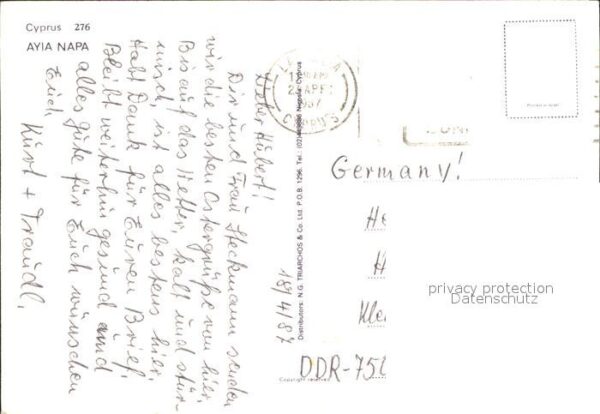 Cyprus 276
AYIA NAPA
Lieber Hubert!
Dir und Frau Heckmann senden
wir die besten Ostergrüße von hier.
Bis auf das Wetter, kalt und stür-
misch ist alles bestens hier.
Habt Dank für Euren Brief,
Bleibt weiterhin gesund und
alles gute für Euch wünschen
Euch
Kurt + Traudl.
18/4/87
Distributors: N.G. TRIARCHOS & Co. Ltd. P.O.B. 1296, Tel.: Nicosia - Cyprus
87
CYPRUS
Printed in
Germany!
He
H
Kle
DDR-75
Copyright reserved
privacy protection
Datenschutz